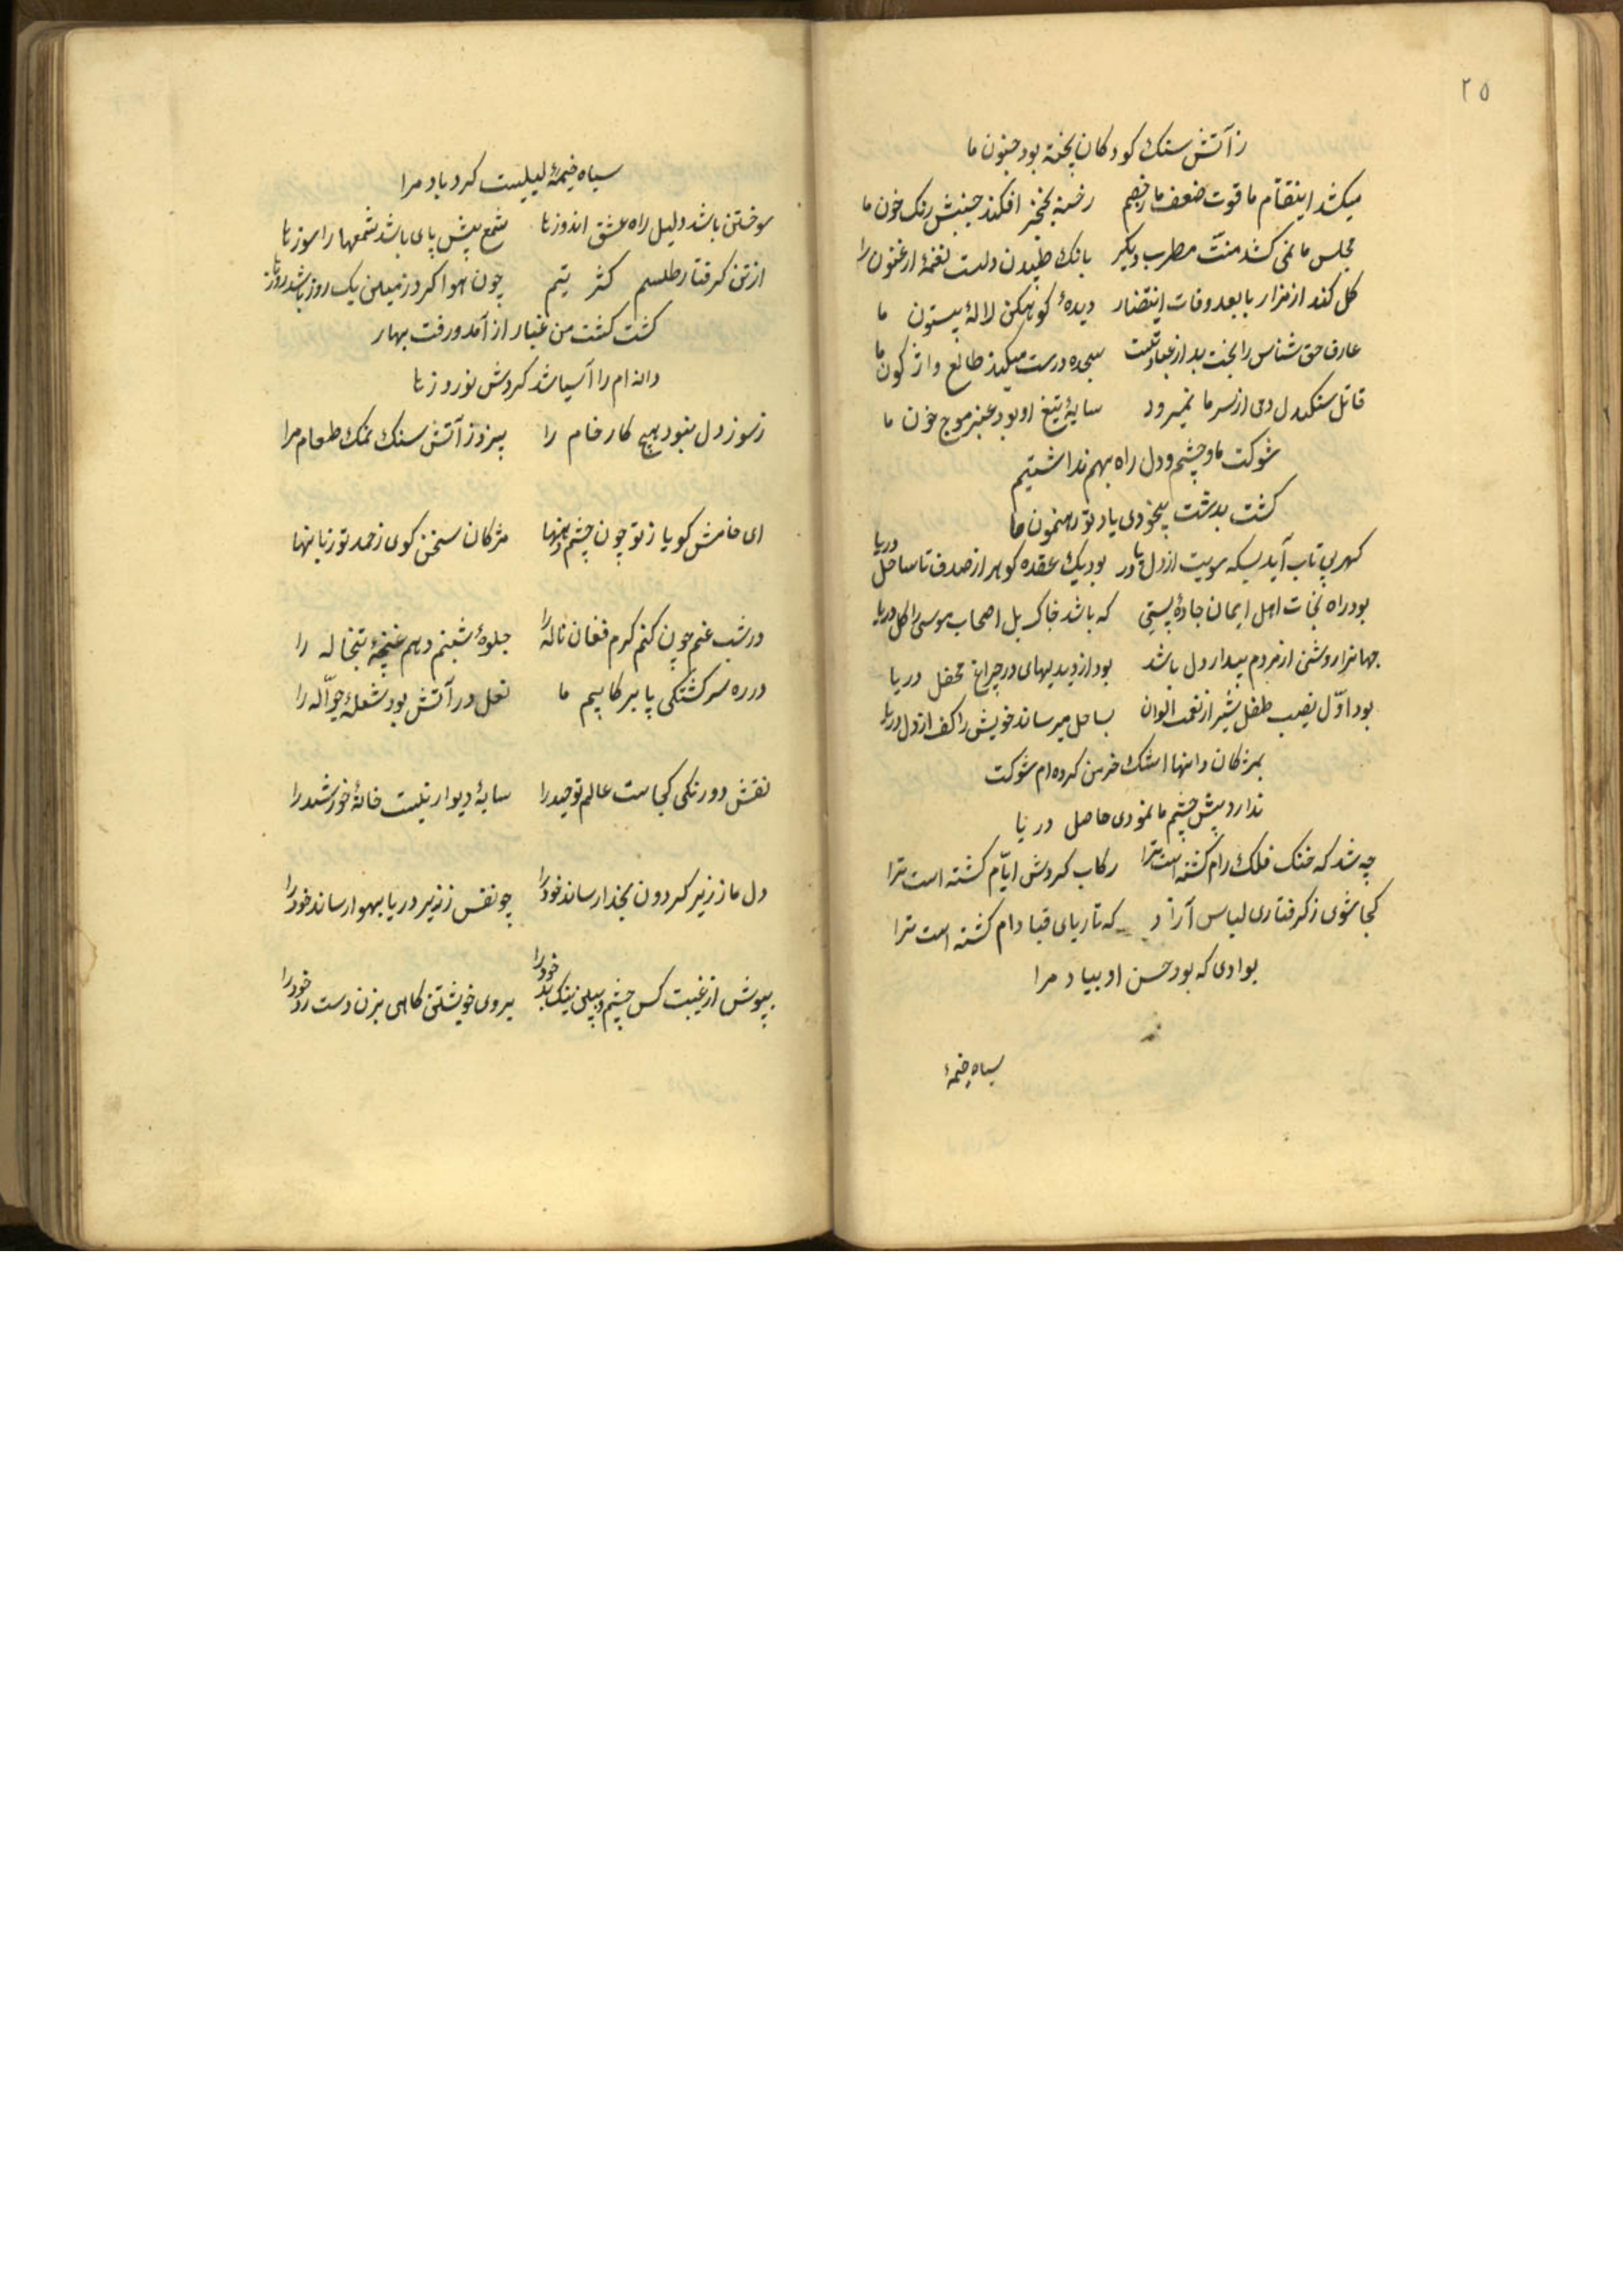 ٢٥
ز آتش سنک کودکان پخته بود جنون ما
میکشد اینتقام ما قوت ضعف ما ز خصم رخنه بخنجر افکند جنبش رنک خون ما
مجلس ما نمی کشد منّت مطرب دیکر بانک طپیدن دلست نغمهٔ ارغنون را
کل کند از مزار ما بعد وفات اینتضار دیدهٔ کوهکن لالهٔ بیستون ما
عارف حق شناس را بخت بد از عبادتست سجده درست میکند طالع واژکون ما
قاتل سنکیدل دمی از سر ما نمیرود سایهٔ تیغ او بود عنبر موج خون ما
شوکت ما و چشم و دل راه بهم نداشتیم
کشت بدشت بیخودی یاد تو رهنمون ما
کهر بی تاب آید بسکه سویت از دل دریا بود یک عقده کوهر از صدف تا ساحل دریا
بود راه نجات اهل ایمان جادهٔ پستی که باشد خاک بل اصحاب موسی را کل دریا
جهانرا روشنی از مردم بیدار دل باشد بود از دیدیهای در چراغ محفل دریا
بود اوّل نصیب طفل بشیر از نعمت الوان بساحل میرساند خویش را کف از دل دریا
بمژکان دانها اشک خرمن کرده ام شوکت
ندارد پیش چشم ما نمودی حاصل دریا
چه شد که خنک فلک رام کشته است ترا رکاب کردش ایّام کشته است ترا
کجا شوی ز کرفتاری لباس آزاد که تارپای قبا دام کشته است ترا
بوادی که بود حسن او بیاد مرا
سیاه خیمهٔ
سیاه خیمهٔ لیلیست کردباد مرا
سوختن باشد دلیل راه عشق اندوز ما شمع پیش پای باشد شمعها را سوز ما
از تن کرفتار طلسم کثر یتیم چون هوا اکر در زمین یک روز باشد روز ما
کشت کشت من غبار از آمد و رفت بهار
دانه ام را آسیا شد کردش نوروز ما
ز سوز دل نبود هیچ کار خام را بپزد ز آتش سنک نمک طعام مرا
ای خامش کویا ز تو چون چشم دهنها مژکان سخن کوی زحمد تو زبانها
در شب غم چون کنم کرم فغان ناله را جلوهٔ شبنم دهم غنچهٔ تبخاله را
در ره سرکشتکی پا بر کابیم ما نعل در آتش بود شعلهٔ جوّاله را
نقش دورنکی کجاست عالم توحید را سایهٔ دیوار نیست خانهٔ خورشید را
دل ما ز زیر کردون بخدا رساند خود را چو نفس ز زیر دریا بهوا رساند خود را
بپوش از غیبت کس چشم و بیلی نیک بد خود را بروی خویشتن کاهی بزن دست رد خود را